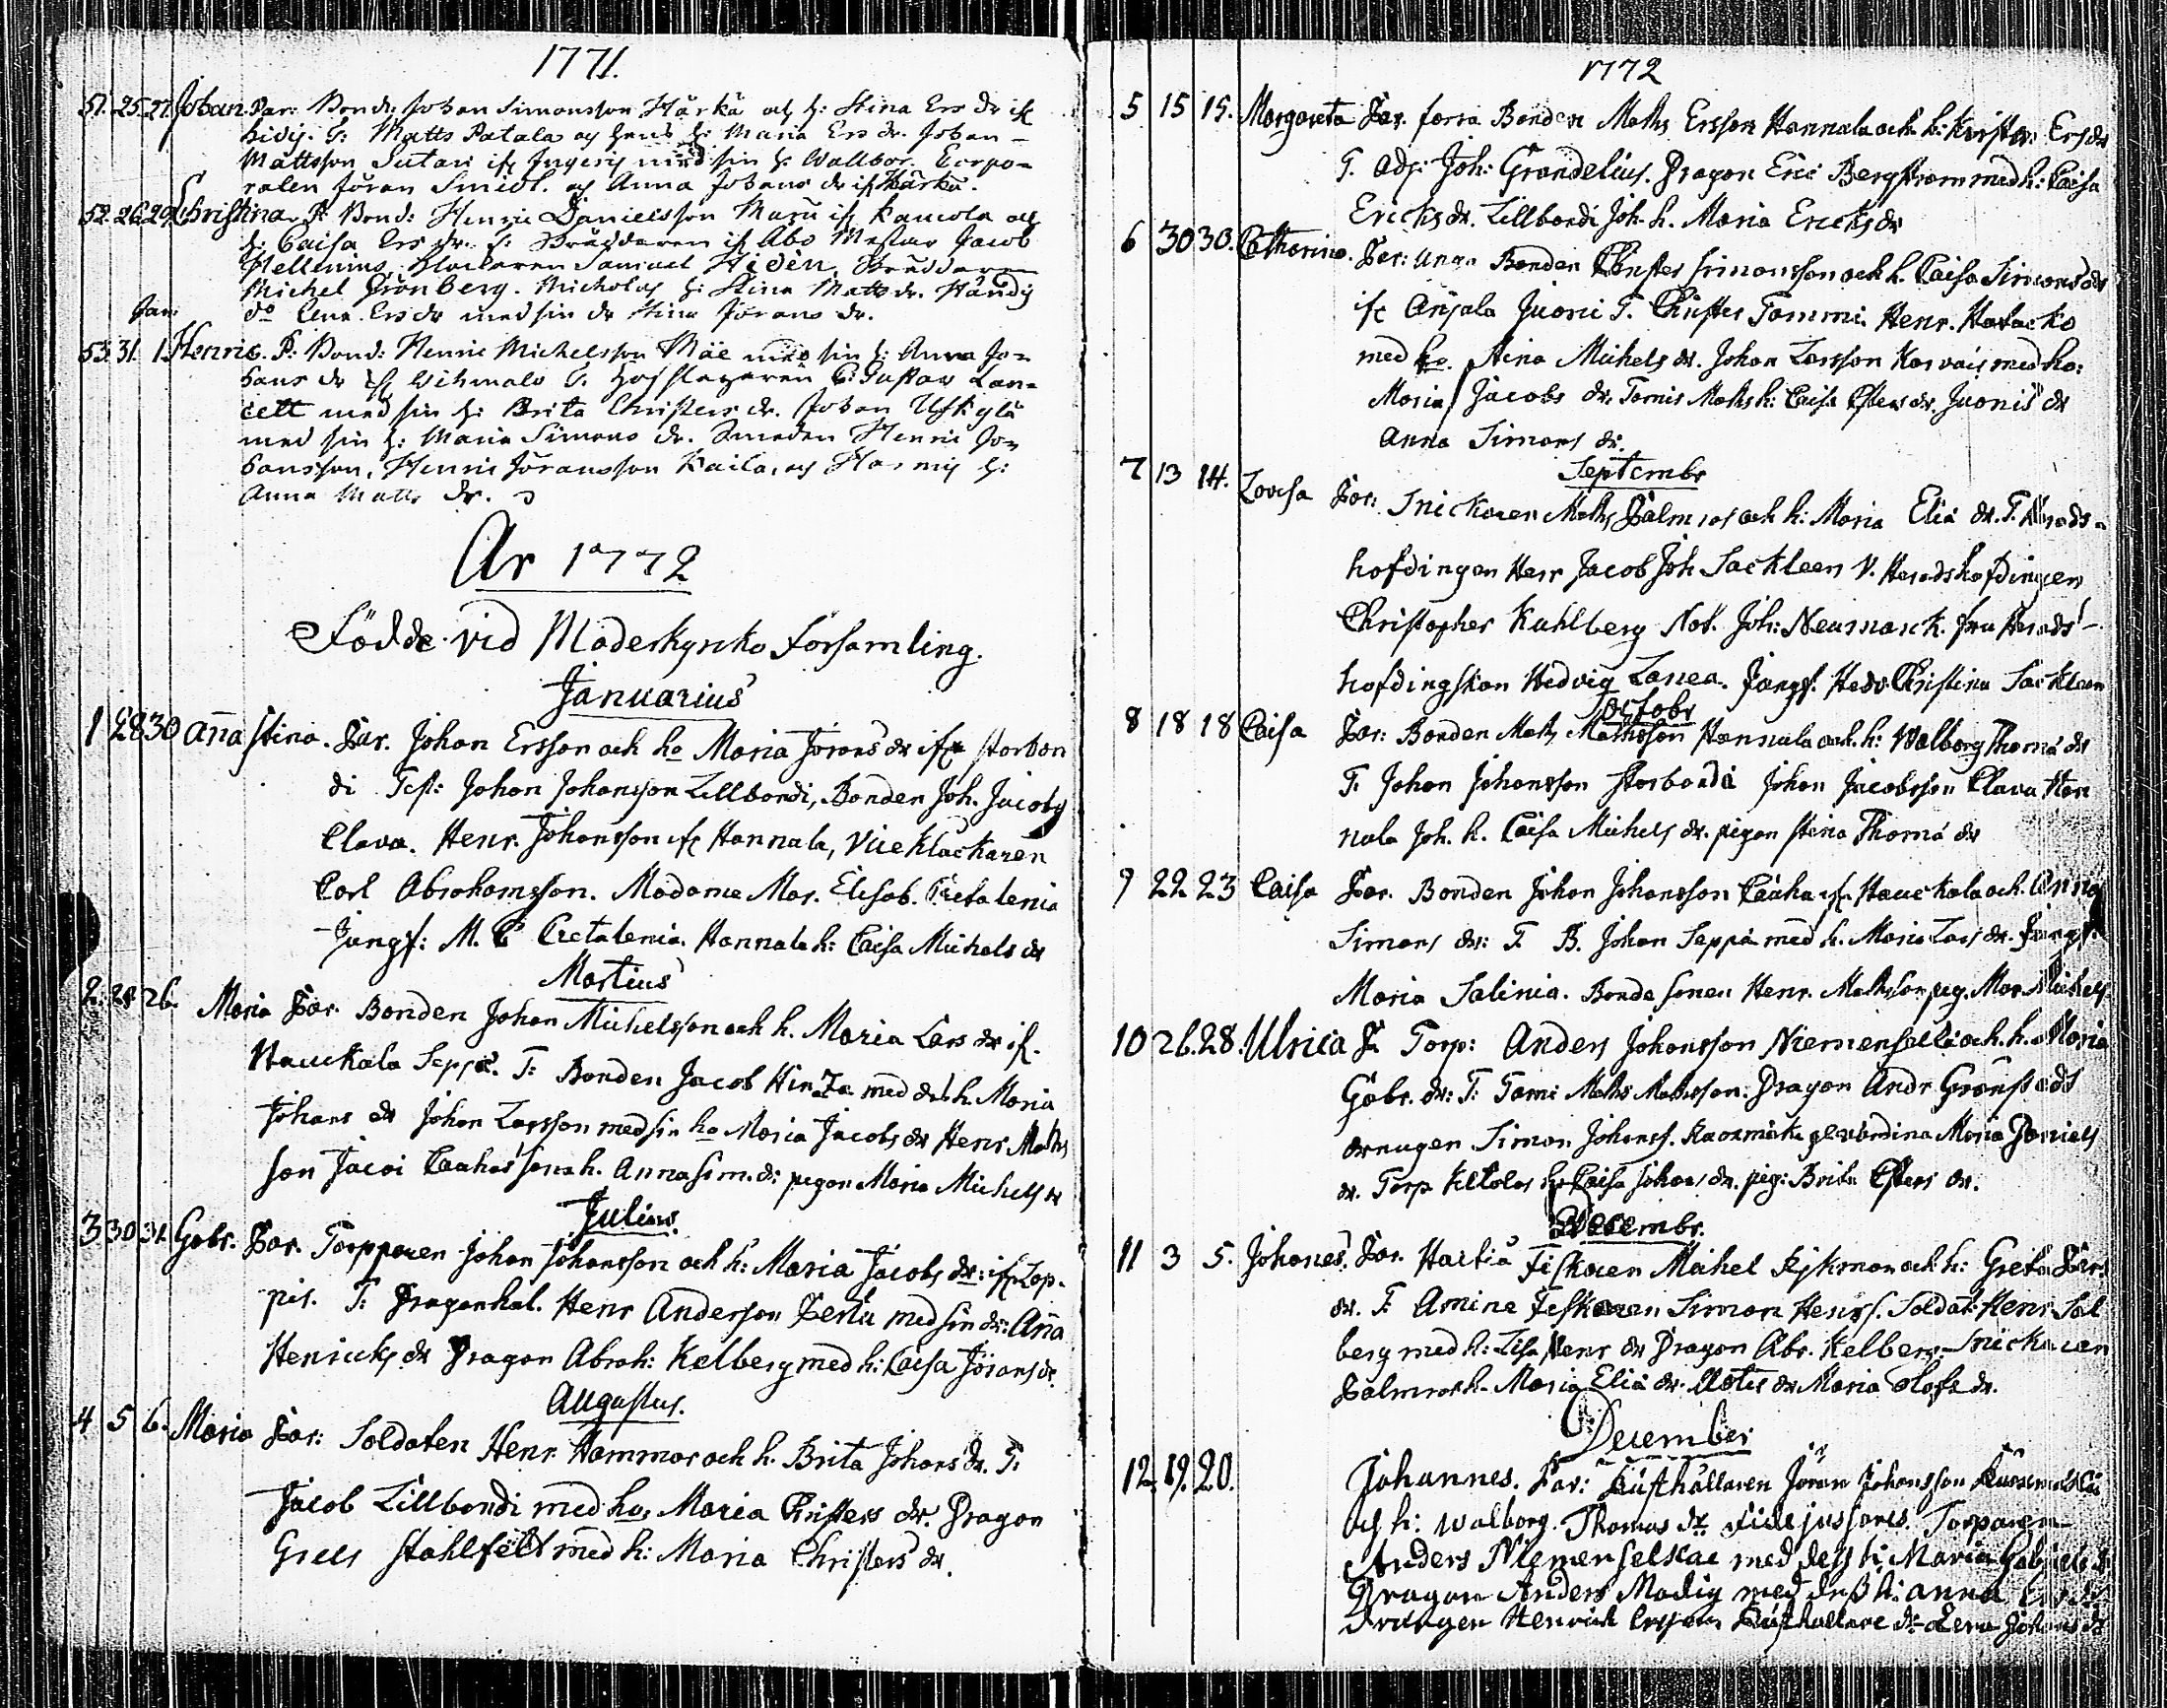 1771.
51. 25. 27. Johan. Par: Bond: Johan Simonsson Härkä och h: Stina Ers dr if
hidij. T: Matts Patala och hans h: Maria Ers dr. Johan
Mattsson Sutari if Ingeris med sin h: Wallbor. Corpo-
ralen Jöran Smidt. och Anna Johans dr if Härkä.
52. 26. 29. Christina. P: Bond: Henric Danielsson Masu if Kaucola och
h: Caisa Ers dr. T: Skräddaren if Åbo Mestar Jacob
Hellenius, Klockaren Samuel Hidén, Skräddaren
Michel Grönberg. Micholas h: Stina Matts dr. Händig
do Ers dr med sin dr Stina Jörans dr.
Jan:
53. 31. 1. Henric. P: Bond: Henric Michelsson Mäe med sin h: Anna Jo-
hans dr if Wihmalo T. Hofslagaren C: Gustav Lan-
cett med sin h: Brita Christers dr. Johan Uhkylä
med sin h: Maria Simons dr. Smeden Henric Jo-
hansson, Henric Jöransson Kaila, och Harmis h:
Anna Matts dr.
År 1772
Födde vid Moderkyrko Församling.
Januarius
1 28 30 Anna Stina. Par. Johan Ersson och ho Maria Jörans dr if Storbon
di Test: Johan Johansson Lillbondi, Bonden Joh. Jacobs
Clava. Henr. Johansson if Hannala, Vice Klåckaren
Carl Abrahamsson. Madame Mar. Elisab. Cretalenia
Jungf: M. C Cretalenia. Hannala h: Caisa Michels dr
Martius
2. 24 26. Maria Par. Bonden Johan Michelsson och h. Maria Lars dr if.
Hauckala Seppä. T: Bonden Jacob Hinza med des h. Maria
Johans dr Johan Larsson med sin ho Maria Jacobs dr Henr Maths
son Jacoi Caahas sons h. Anna Sim. dr pigan Maria Michels dr
Julius.
3 30 31 Gabr. Par. Torpparen Johan Johansson och h: Maria Jacobs dr: if Lop-
pis. T: Dragonkal. Henr Andersson Pertu med sin dr: Anna
Henricks dr Dragon Abrah: Kelberg med h: Caisa Jörans dr.
Augustus.
4 5 6. Maria Par: Soldaten Henr Hammar och h. Brita Johans dr. T:
Jacob Lillbondi med ho, Maria Christers dr. Dragon
Grels Stahlfelt med h: Maria Christers dr.
1772
5 15 15. Margareta Par. forra Bonden Maths Ersson Hannala och h: Kristin Ers dr
T. Adj: Joh: Grandelius. Dragon Eric Bergstrom med h: Caisa
Ericks dr. Lillbondi Joh. h. Maria Ericks dr
6 30 30. Catharina. Par: Unga Bonden Christer Simonsson och h. Caisa Simons dr
if Anjala Juoni T. Christer Tommi. Henr. Hatacko
med ho. Stina Michels dr. Johan Larsson Karvais med ho:
Maria Jacobs dr. Tomis Maths h: Caisa Christers dr. Juonis dr
Anna Simons dr.
Septembr
7 13 14. Lovisa Par: Snickaren Maths Palmros och h: Maria Eliæ dr. T. Herads-
hofdingen Herr Jacob Joh Sackleen V. Heradshofdingen
Christopher Kuhlberg Not. Joh: Neumarck. fru Herads-
hofdingskan Hedvig Lanea. Jungf. Hedv. Christina Sackleen
Octobr
8 18 18 Caisa Par: Bonden Maths Mathsson Hannula och. h: Walborg Thomæ dr
T. Johan Johansson Storbondi Johan Jacobsson Clava Han
nula Joh. h. Caisa Michels dr. pigan Stina Thomæ dr
9 22 23 Caisa Par. Bonden Johan Johansson Caaha if. Hauckala och. Anna
Simons dr: T. B. Johan Seppä med h. Maria Lars dr. Jungf:
Maria Salinia. Bonde sonen Henr. Mathsson pig. Mar. Michels
10 26. 28. Ulrica Pa Torp: Anders Johansson Niemenselkä och. h. Maria
Gabr. dr: T: Tomi Maths Mathsson. Dragon Andr Gronstedt
drengen Simon Johanss. Maria Daniels
dr. Torp Keltolas h. Caisa Johans dr. pig: Brita Christers dr.
Decembr.
11 3 5. Johanes. Par. Hartia Fiskaren Michel Rykman och h: Greta Pär
dr. T: Amine Feskaren Simon Henrs. Soldat: Henr Sal
berg med h: Lisa Henr dr Dragon Abr. Kelberg. Snickaren
Palmros h. Maria Eliæ dr. Maria Olofs dr.
December
12. 19. 20. Johannes. Par: Rusthållaren Jöran Johansson
och h: Walborg. Thomas dr Fidejussores. Torparen
Anders Niemenselkae med dess h: Maria Gabriels dr
Dragon Anders Modig med dess h: Anna Ers dr.
drängen Henrich Ersson, Rusthallare dr Lena Johans dr